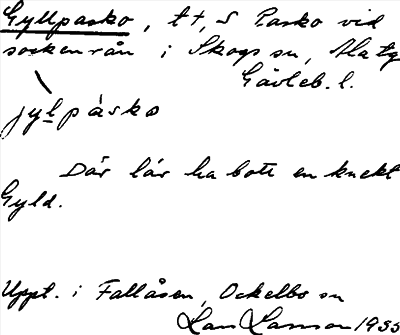 Gyllpasko, tt, S Pasko vid
sockenrån i Skogs sn, Ala tg
Gävleb. l.
jylpásko
Där lär ha bott en knekt
Gyld.
Uppt. i Fallåsen, Ockelbo sn
Lars Larsson 1935